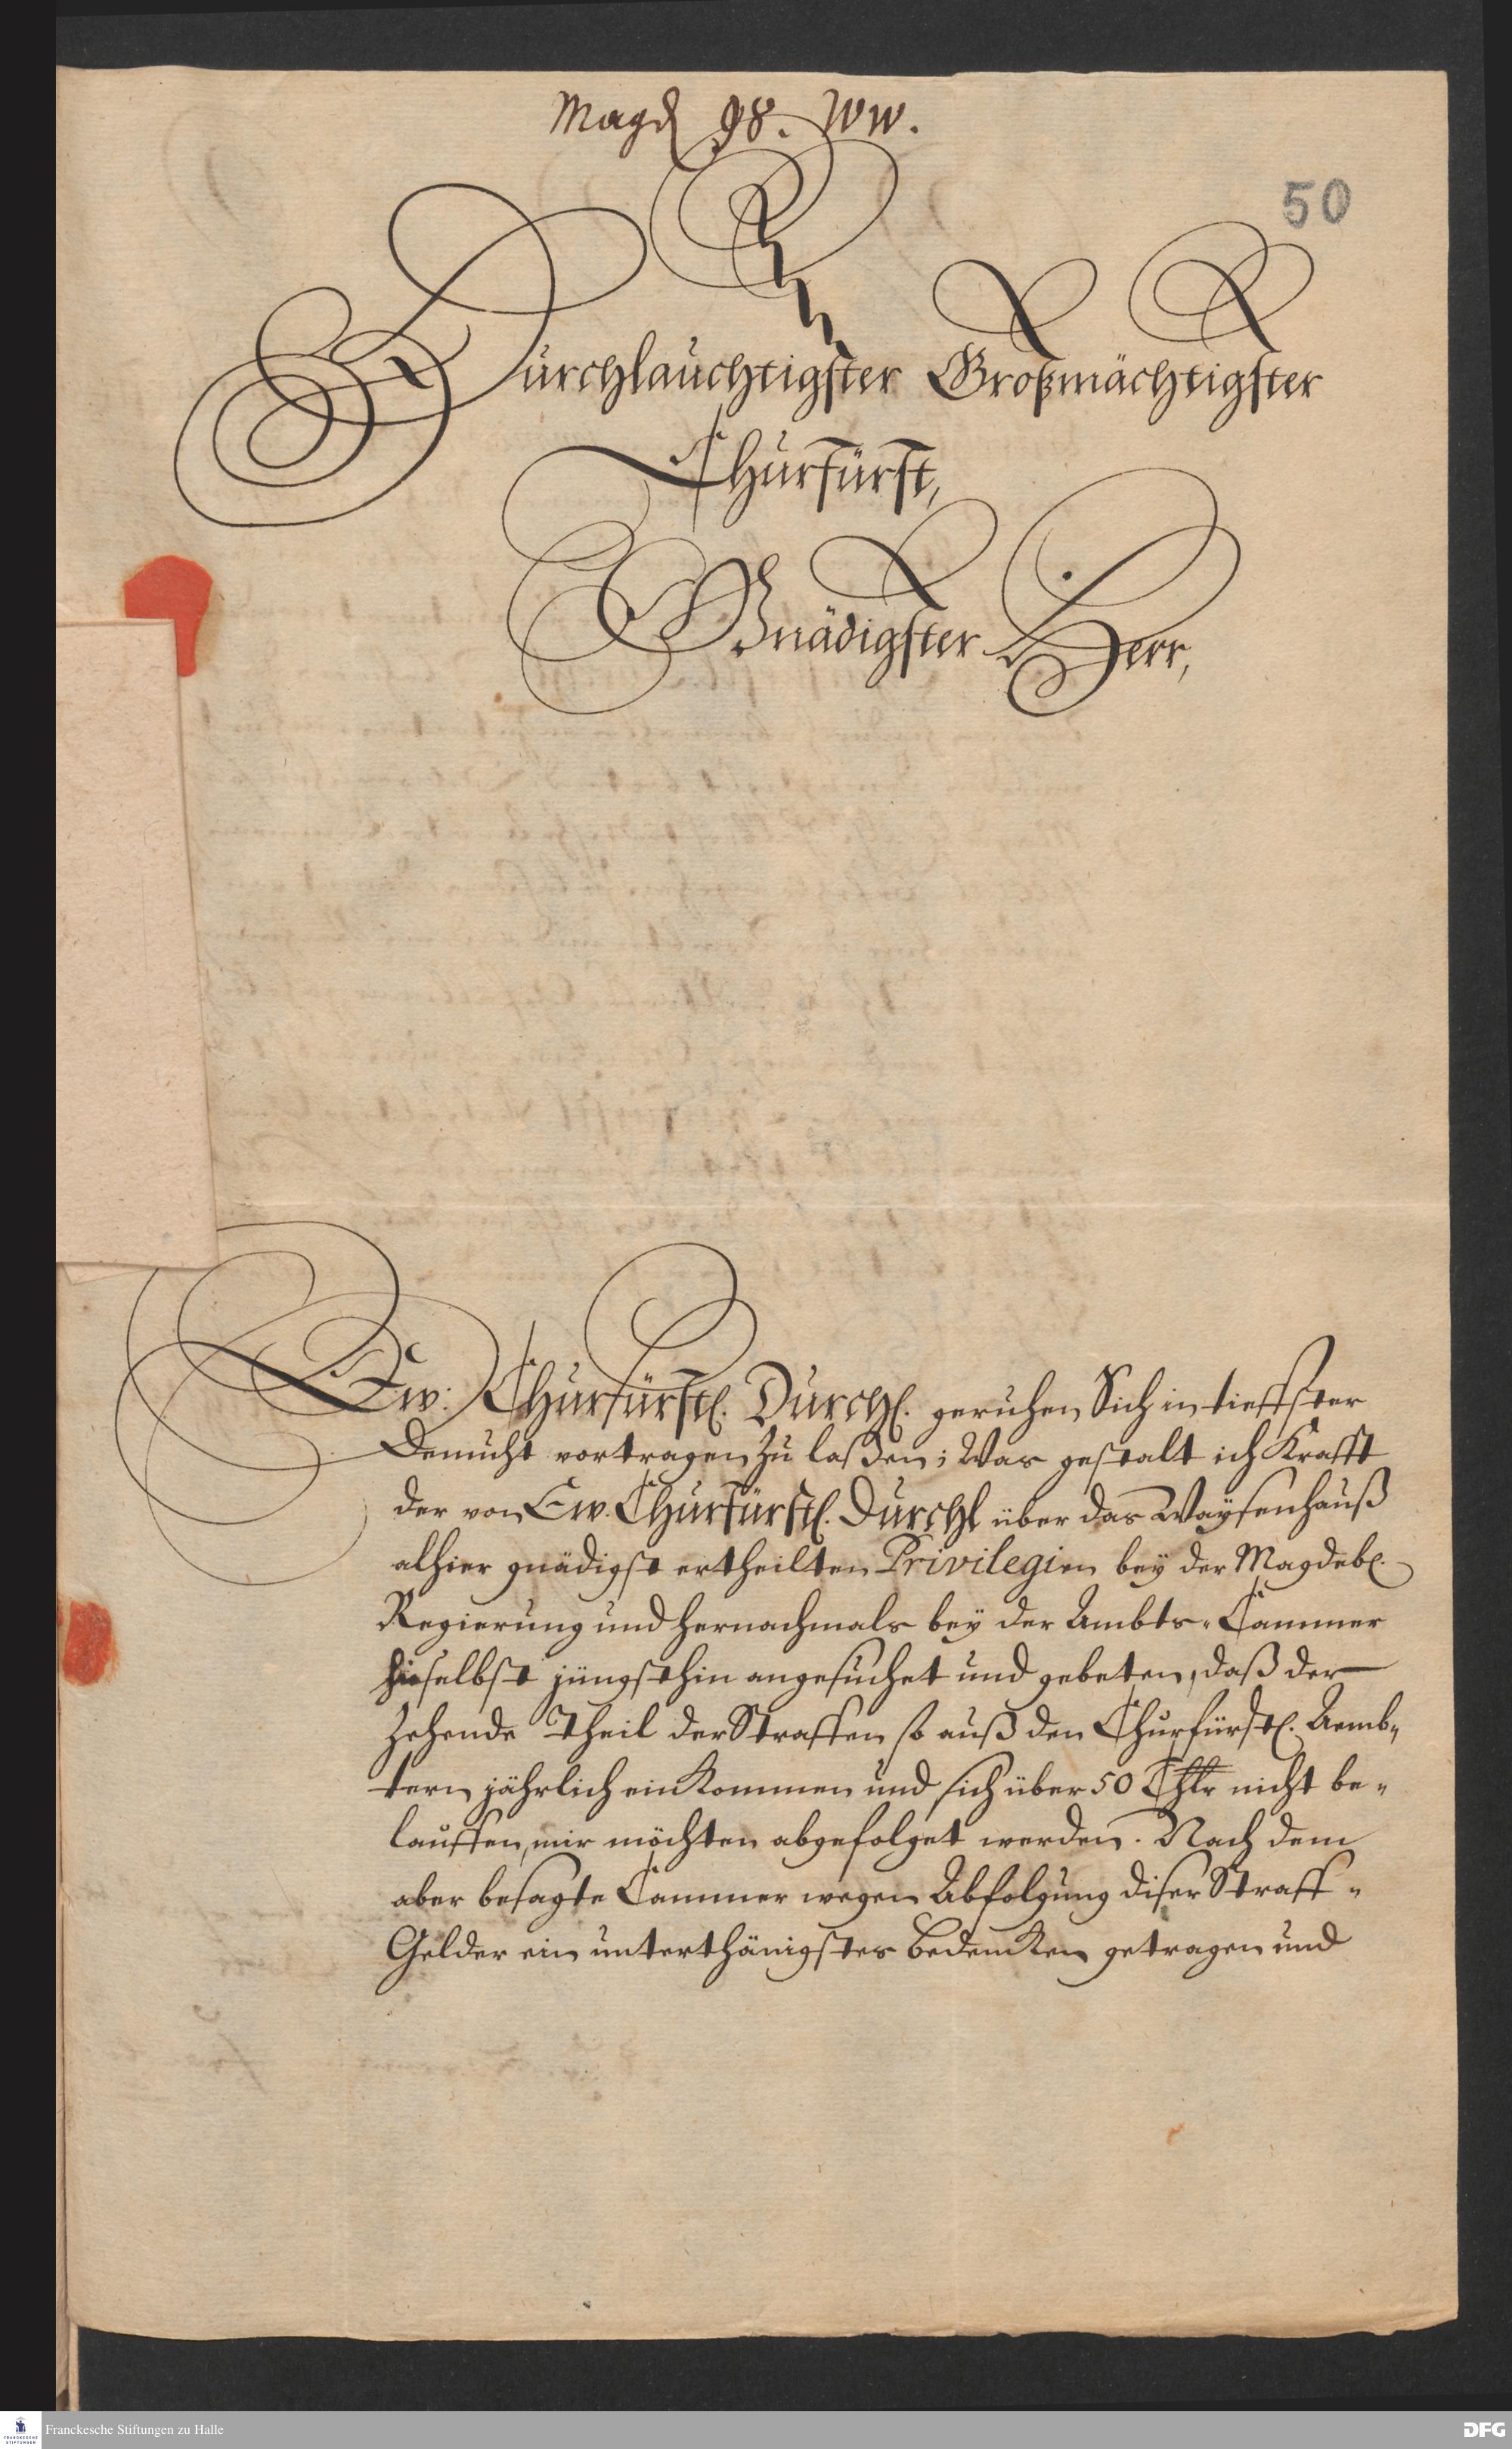 Magd 98. WW.
50
Durchlauchtigster Großmächtigster
Churfürst,
Gnädigster Herr,
Ew: Churfürstl. Durchl. geruhen Sich in tieffster
Demuht vortragen zu laßen; Was gestalt ich Krafft
der von Ew. Churfürstl. Durchl über das Waÿsenhauß
alhier gnädigst ertheilten Privilegien beÿ der Magdebl.
Regierung und hernachmals beÿ der Ambts-Cammer
hieselbst jüngsthin angesuchet und gebeten, daß der
Zehende Theil der Straffen so auß den Churfürstl. Aemb-
tern jährlich einkommen und sich über 50 Thlr nicht be-
lauffen, mir möchten abgefolget werden. Nach dem
aber besagte Cammer wegen Abfolgung diser Straff-
Gelder ein unterthänigstes bedencken getragen und
Franckesche Stiftungen zu Halle
DFG